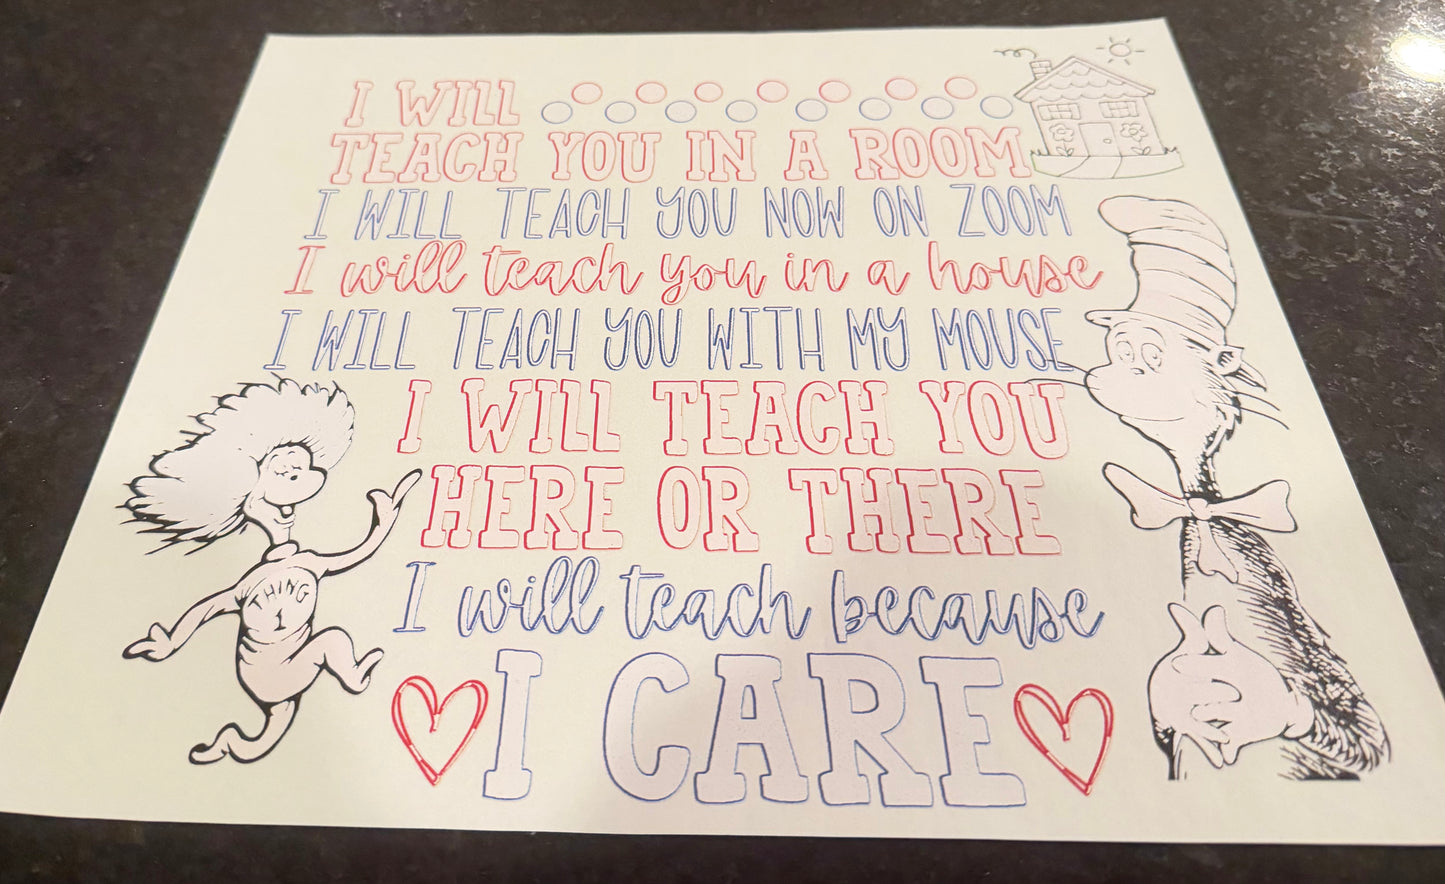 I WILL
TEACH YOU IN A ROOM
I WILL TEACH YOU NOW ON ZOOM
I will teach you in a house
I WILL TEACH YOU WITH MY MOUSE
I WILL TEACH YOU
HERE OR THERE
I will teach because
I CARE
THING
1